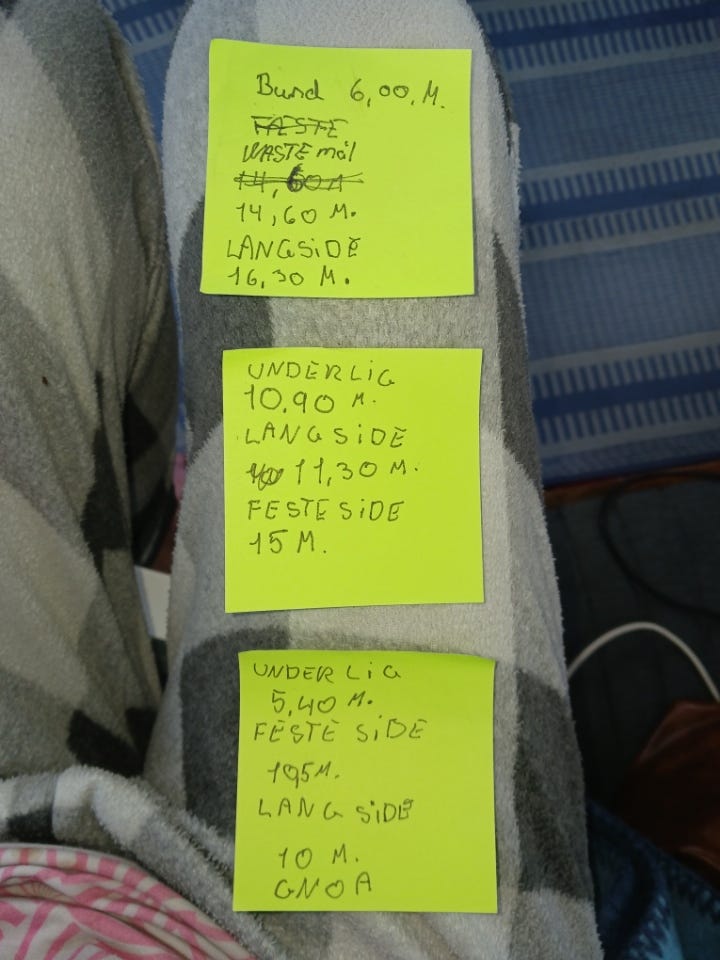 Bund 6,00, M.
FÆSTE
VASTE mål
14,60 M.
LANGSIDE
16,30 M.
UNDERLIG
10,90 M.
LANGSIDE
11,30 M.
FESTE SIDE
15 M.
UNDERLIG
5,40 M.
FESTE SIDE
10,5 M.
LANGSIDE
10 M.
GNOA